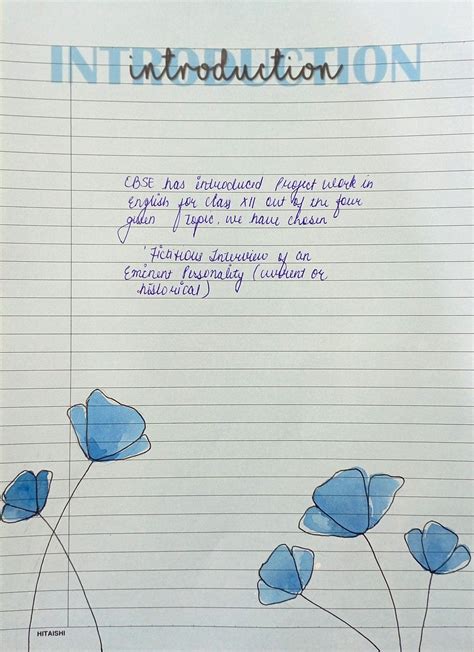 INTRODUCTION
introduction
CBSE has introduced Project Work in
English for Class XII out of the four
given Topic. we have chosen
'Fictitious Interview of an
Eminent Personality (current or
historical)
HITAISHI